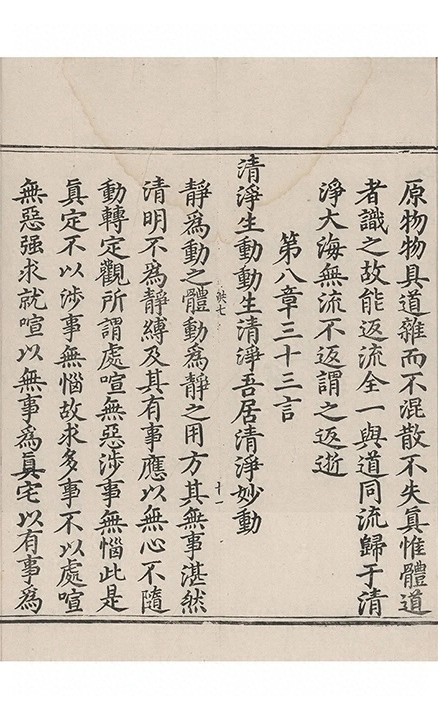 原物物具道雜而不混散不失真惟體道
者識之故能返流全一與道同流歸于清
淨大海無流不返謂之返逝
第八章三十三言
清淨生動動生清淨吾居清淨妙動
靜為動之體動為靜之用方其無事湛然
十一
清明不為靜縛及其有事應以無心不隨
動轉定觀所謂處喧無惡涉事無惱此是
真定不以涉事無惱故求多事不以處喧
無惡强求就喧以無事為真宅以有事為